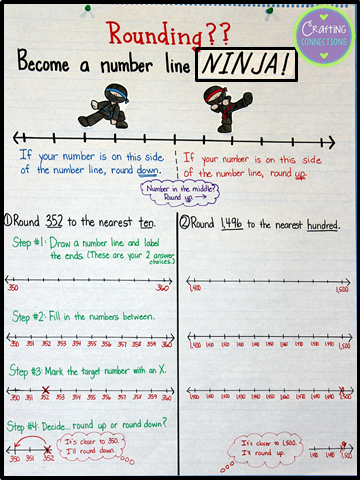 Crafting
CONNECTIONS
Rounding??
Become a number line NINJA!
If your number is on this side
of the number line, round down.
If your number is on this side
of the number line, round up.
Number in the middle?
Round up →
① Round 352 to the nearest ten.
Step #1: Draw a number line and label
the ends. (These are your 2 answer
choices.)
350 360
Step #2: Fill in the numbers between.
350 351 352 353 354 355 356 357 358 359 360
Step #3: Mark the target number with an X.
350 351 352 353 354 355 356 357 358 359 360
Step #4: Decide... round up or round down?
350 351 352
It's closer to 350.
I'll round down.
② Round 1,496 to the nearest hundred.
1,400 1,500
1,400 1,410 1,420 1,430 1,440 1,450 1,460 1,470 1,480 1,490 1,500
1,400 1,410 1,420 1,430 1,440 1,450 1,460 1,470 1,480 1,490 1,500
It's closer to 1,500.
I'll round up.
1,490 1,500